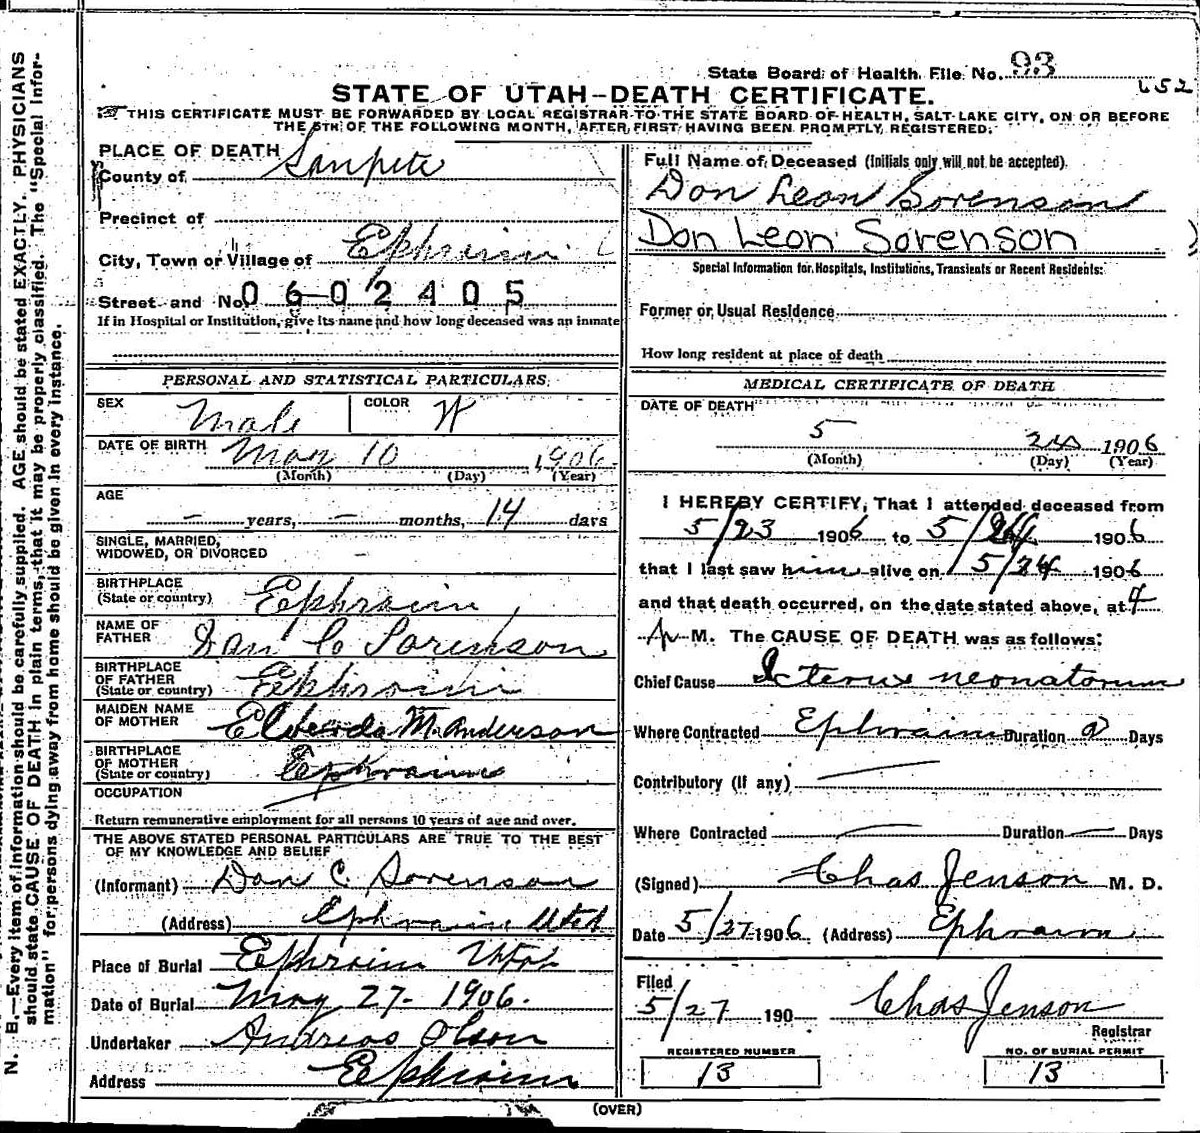 State Board of Health File No. 93
652
STATE OF UTAH—DEATH CERTIFICATE.
THIS CERTIFICATE MUST BE FORWARDED BY LOCAL REGISTRAR TO THE STATE BOARD OF HEALTH, SALT LAKE CITY, ON OR BEFORE
THE 5TH OF THE FOLLOWING MONTH, AFTER FIRST HAVING BEEN PROMPTLY REGISTERED.
PLACE OF DEATH
County of Sanpete
Precinct of
City, Town or Village of Ephraim
Street and No. 0602405
If in Hospital or Institution, give its name and how long deceased was an inmate
PERSONAL AND STATISTICAL PARTICULARS.
SEX Male COLOR W
DATE OF BIRTH May 10 1906
(Month) (Day) (Year)
AGE
— years, — months, 14 days
SINGLE, MARRIED,
WIDOWED, OR DIVORCED —
BIRTHPLACE
(State or country) Ephraim
NAME OF
FATHER Dan C Sorenson
BIRTHPLACE
OF FATHER
(State or country) Ephraim
MAIDEN NAME
OF MOTHER M. Anderson
BIRTHPLACE
OF MOTHER
(State or country) Ephraim
OCCUPATION
Return remunerative employment for all persons 10 years of age and over.
THE ABOVE STATED PERSONAL PARTICULARS ARE TRUE TO THE BEST
OF MY KNOWLEDGE AND BELIEF
(Informant) Don C. Sorenson
(Address) Ephraim Utah
Place of Burial Ephraim Utah
Date of Burial May 27- 1906.
Undertaker Andreas Olson
Address Ephraim
Full Name of Deceased (Initials only will not be accepted).
Don Leon Sorenson
Don Leon Sorenson
Special Information for Hospitals, Institutions, Transients or Recent Residents:
Former or Usual Residence
How long resident at place of death
MEDICAL CERTIFICATE OF DEATH
DATE OF DEATH
5 24 1906
(Month) (Day) (Year)
I HEREBY CERTIFY, That I attended deceased from
5/23 1906 to 5/24 1906
that I last saw him alive on 5/24 1906
and that death occurred, on the date stated above, at 4
A M. The CAUSE OF DEATH was as follows:
Chief Cause Icterus neonatorum
Where Contracted Ephraim Duration Days
Contributory (if any) —
Where Contracted — Duration — Days
(Signed) Chas Jenson M. D.
Date 5/27 1906 (Address) Ephraim
Filed
5/27 190 Chas Jenson
Registrar
REGISTERED NUMBER NO. OF BURIAL PERMIT
13 13
(OVER)
N. B.—Every item of information should be carefully supplied. AGE should be stated EXACTLY. PHYSICIANS
should state CAUSE OF DEATH in plain terms, that it may be properly classified. The "Special Infor-
mation" for persons dying away from home should be given in every instance.